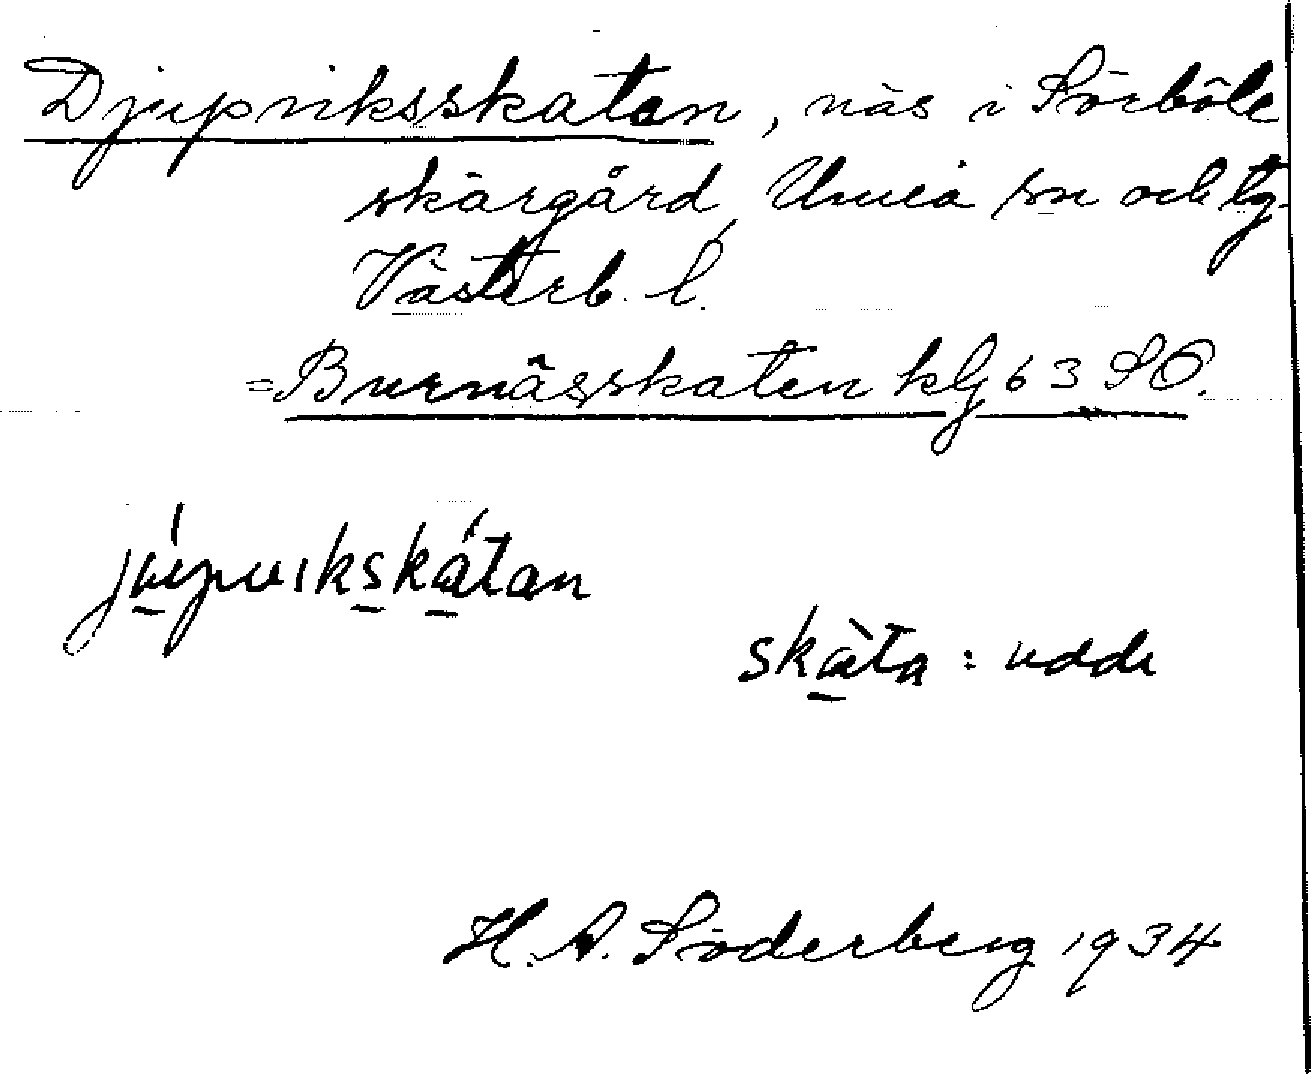 Djupviksskatan, näs i Sörböle
skärgård, Umeå sn och tg
Västerb. l.
=Burnässkaten kbl 63 SO.
júpvikskátan
skàta : udde
H. A. Söderberg 1934